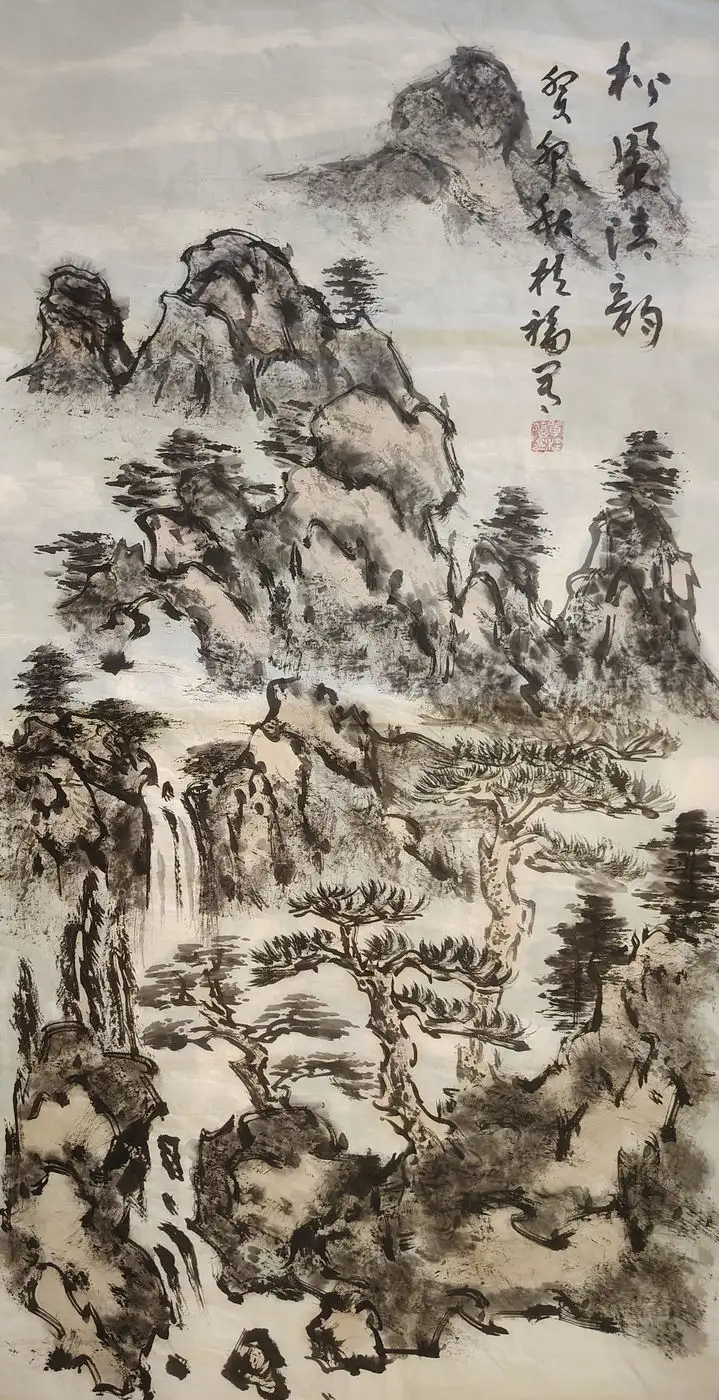 松壑清韵
癸卯秋桂福写